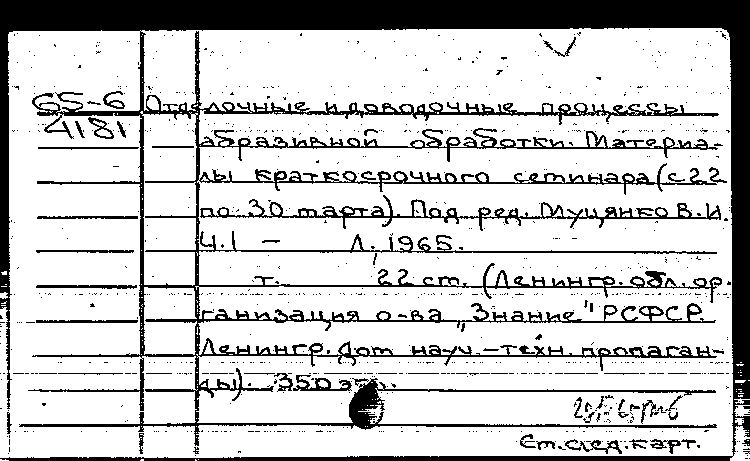 65-6 Отделочные и доводочные процессы
4181 абразивной обработки. Материа-
лы краткосрочного семинара (с 22
по 30 марта). Под ред. Муцянко В.И.
Ч.1 — Л., 1965.
т. 22 см. (Ленингр. обл. ор-
ганизация о-ва „Знание" РСФСР.
Ленингр. дом науч.-техн. пропаган-
ды). 350 экз.
См. след. карт.